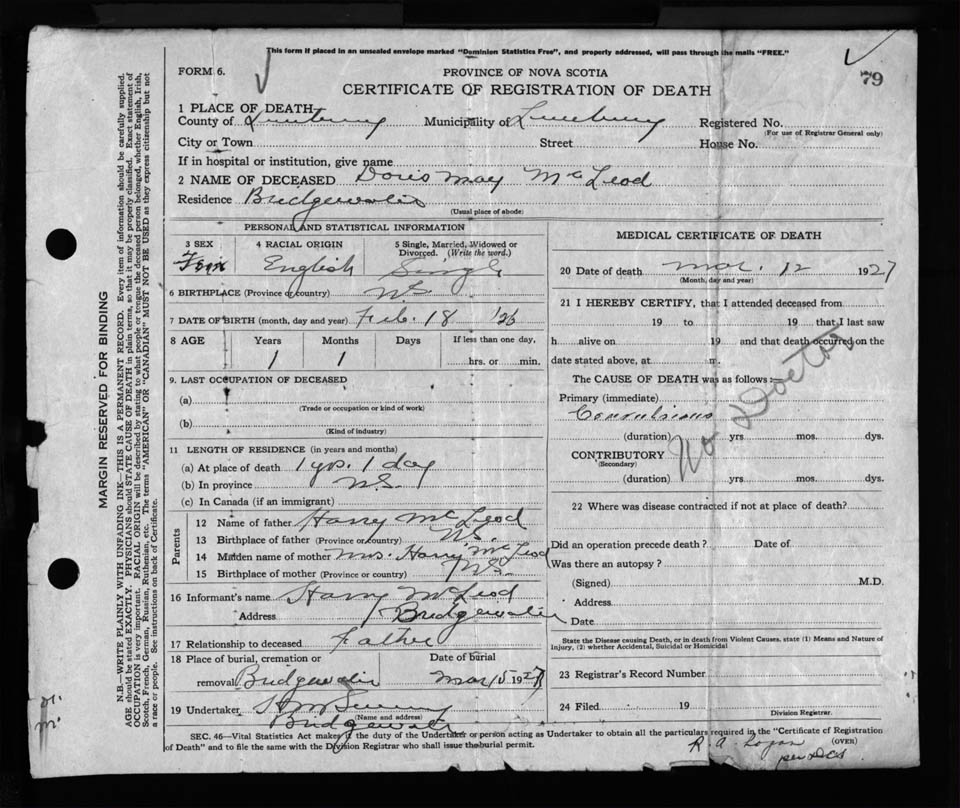 This form if placed in an unsealed envelope marked "Dominion Statistics Free", and properly addressed, will pass through the mails "FREE."
79
FORM 6.
PROVINCE OF NOVA SCOTIA
CERTIFICATE OF REGISTRATION OF DEATH
1 PLACE OF DEATH
County of Lunenburg Municipality of Lunenburg Registered No.
(For use of Registrar General only)
City or Town Street House No.
If in hospital or institution, give name
2 NAME OF DECEASED Doris May McLeod
Residence Bridgewater
(Usual place of abode)
PERSONAL AND STATISTICAL INFORMATION
3 SEX 4 RACIAL ORIGIN 5 Single, Married, Widowed or Divorced. (Write the word.)
English Single
6 BIRTHPLACE (Province or country) N.S.
7 DATE OF BIRTH (month, day and year) Feb. 18 '26
8 AGE Years Months Days If less than one day,
1 1 hrs. or min.
9. LAST OCCUPATION OF DECEASED
(a)
(Trade or occupation or kind of work)
(b)
(Kind of industry)
11 LENGTH OF RESIDENCE (in years and months)
(a) At place of death 1 yrs. 1 day
(b) In province N.S.
(c) In Canada (if an immigrant)
Parents
12 Name of father Harry McLeod
13 Birthplace of father (Province or country) N.S.
14 Maiden name of mother Mrs. Harry McLeod
15 Birthplace of mother (Province or country) N.S.
16 Informant's name Harry McLeod
Address Bridgewater
17 Relationship to deceased Father
18 Place of burial, cremation or Date of burial
removal Bridgewater Mar 15 1927
19 Undertaker
(Name and address)
Bridgewater
MEDICAL CERTIFICATE OF DEATH
20 Date of death Mar. 12 1927
(Month, day and year)
21 I HEREBY CERTIFY, that I attended deceased from
19 to 19 that I last saw
h alive on 19 and that death occurred on the
date stated above, at m.
The CAUSE OF DEATH was as follows:
Primary (immediate)
Convulsions
(duration) yrs mos. dys.
No Doctor
CONTRIBUTORY
(Secondary)
(duration) yrs mos. dys.
22 Where was disease contracted if not at place of death?
Did an operation precede death? Date of
Was there an autopsy?
(Signed) M.D.
Address
Date
State the Disease causing Death, or in death from Violent Causes, state (1) Means and Nature of
Injury, (2) whether Accidental, Suicidal or Homicidal
23 Registrar's Record Number
24 Filed 19
Division Registrar.
SEC. 46—Vital Statistics Act makes it the duty of the Undertaker or person acting as Undertaker to obtain all the particulars required in the "Certificate of Registration
of Death" and to file the same with the Division Registrar who shall issue the burial permit.
(OVER)
R. A. Logan
MARGIN RESERVED FOR BINDING
N.B.—WRITE PLAINLY WITH UNFADING INK—THIS IS A PERMANENT RECORD. Every item of information should be carefully supplied.
AGE should be stated EXACTLY. PHYSICIANS should STATE CAUSE OF DEATH in plain terms, so that it may be properly classified. Exact statement of
OCCUPATION is very important. RACIAL ORIGIN will be described by stating to what people or tongue the deceased person belonged, whether English, Irish,
Scotch, French, German, Russian, Ruthenian, etc. The terms "AMERICAN" OR "CANADIAN" MUST NOT BE USED as they express citizenship but not
a race or people. See instructions on back of Certificate.